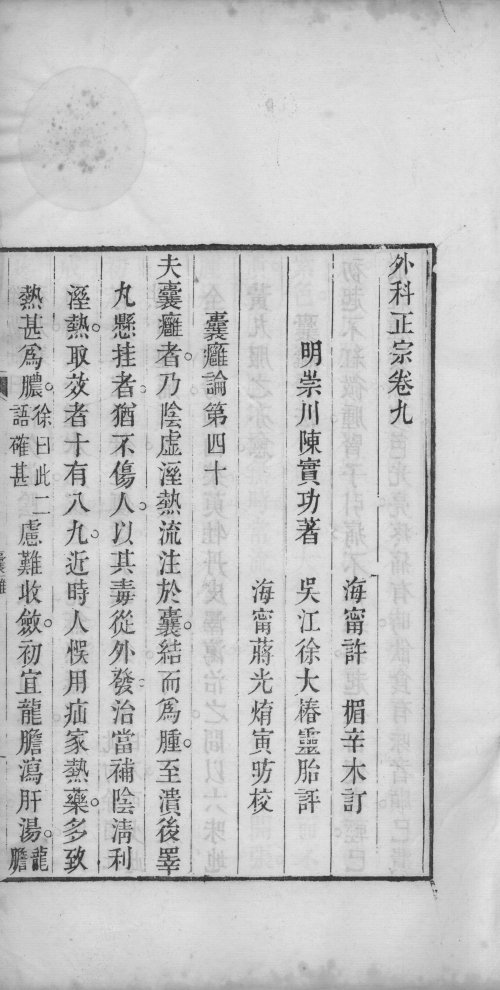 外科正宗卷九
海甯許楣辛木訂
明崇川陳實功著　吳江徐大椿靈胎評
海甯蔣光焴寅昉校
囊癰論第四十
夫囊癰者乃陰虛溼熱流注於囊結而爲腫至潰後睪
丸懸挂者猶不傷人以其毒從外發治當補陰淸利
溼熱取效者十有八九近時人悞用疝家熱藥多致
熱甚爲膿徐曰此二語確甚慮難收斂初宜龍膽瀉肝湯龍膽
囊癰